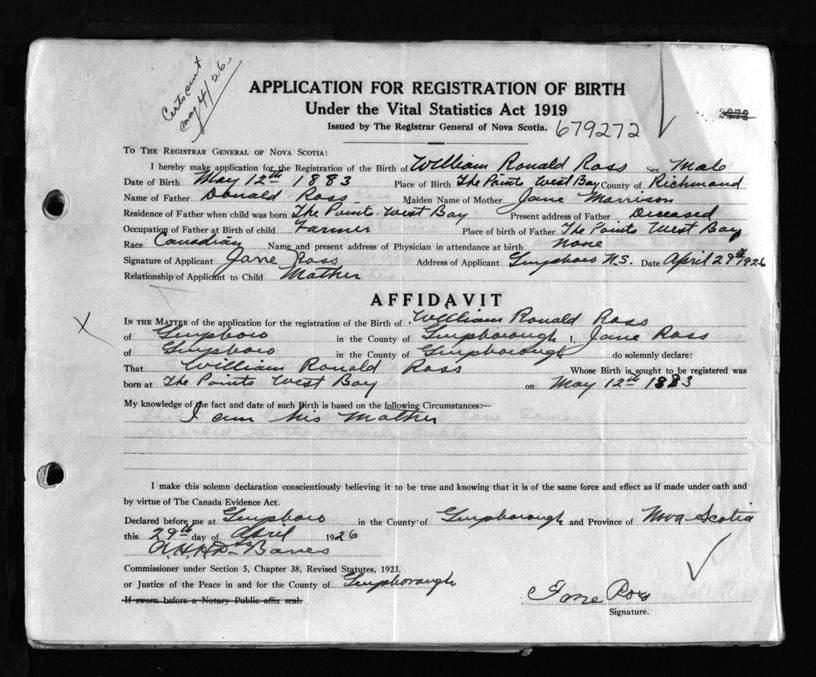 Cert sent
May 4/26.
APPLICATION FOR REGISTRATION OF BIRTH
Under the Vital Statistics Act 1919
Issued by The Registrar General of Nova Scotia. 679272
TO THE REGISTRAR GENERAL OF NOVA SCOTIA:
I hereby make application for the Registration of the Birth of William Ronald Ross Sex Male
Date of Birth May 12th 1883 Place of Birth The Points West Bay County of Richmond
Name of Father Donald Ross Maiden Name of Mother Jane Morrison
Residence of Father when child was born The Points West Bay Present address of Father Deceased
Occupation of Father at Birth of child Farmer Place of birth of Father The Points West Bay
Race Canadian Name and present address of Physician in attendance at birth none
Signature of Applicant Jane Ross Address of Applicant Guysboro N.S. Date April 29th 1926
Relationship of Applicant to Child Mother
AFFIDAVIT
IN THE MATTER of the application for the registration of the Birth of William Ronald Ross
of Guysboro in the County of Guysborough I, Jane Ross
of Guysboro in the County of Guysborough do solemnly declare:
That William Ronald Ross Whose Birth is sought to be registered was
born at The Points West Bay on May 12th 1883
My knowledge of the fact and date of such Birth is based on the following Circumstances:—
I am his Mother
I make this solemn declaration conscientiously believing it to be true and knowing that it is of the same force and effect as if made under oath and
by virtue of The Canada Evidence Act.
Declared before me at Guysboro in the County of Guysborough and Province of Nova Scotia
this 29th day of April 1926
Commissioner under Section 5, Chapter 38, Revised Statutes, 1923.
or Justice of the Peace in and for the County of Guysborough
If sworn before a Notary Public affix seal.
Jane Ross
Signature.